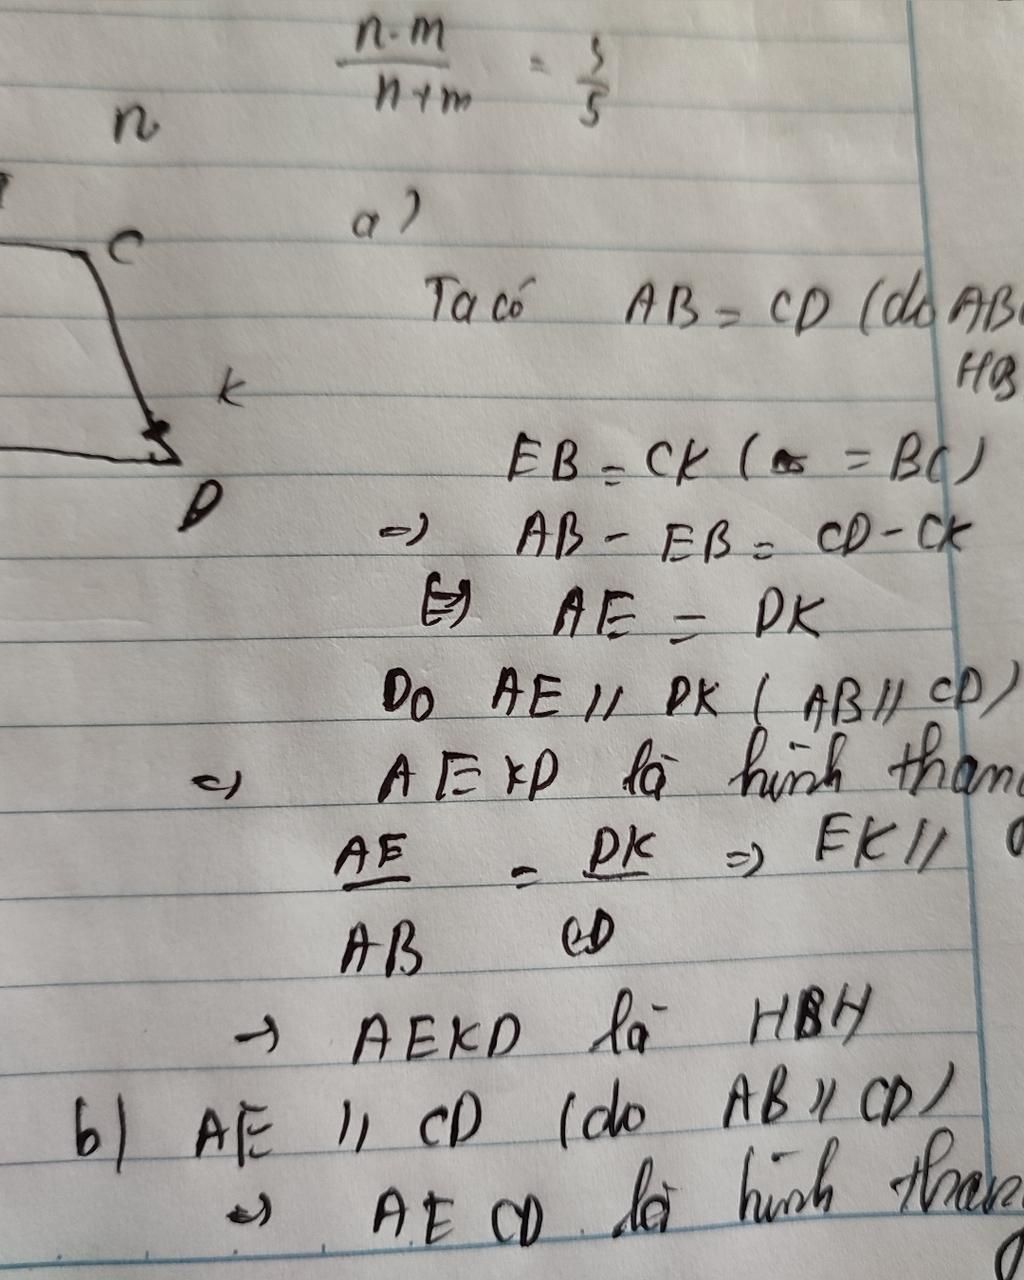 n.m
n+m
= 3
5
n
C
a)
Ta có AB = CD (do AB
HB
K
EB = CK ( = BC)
D
=) AB - EB = CD - CK
AE = DK
Do AE // DK ( AB // CD)
=) AEKD là hình than
AE = DK =) EK //
AB CD
-> AEKD là HBH
b) AE // CD (do AB // CD)
=) AECD là hình than